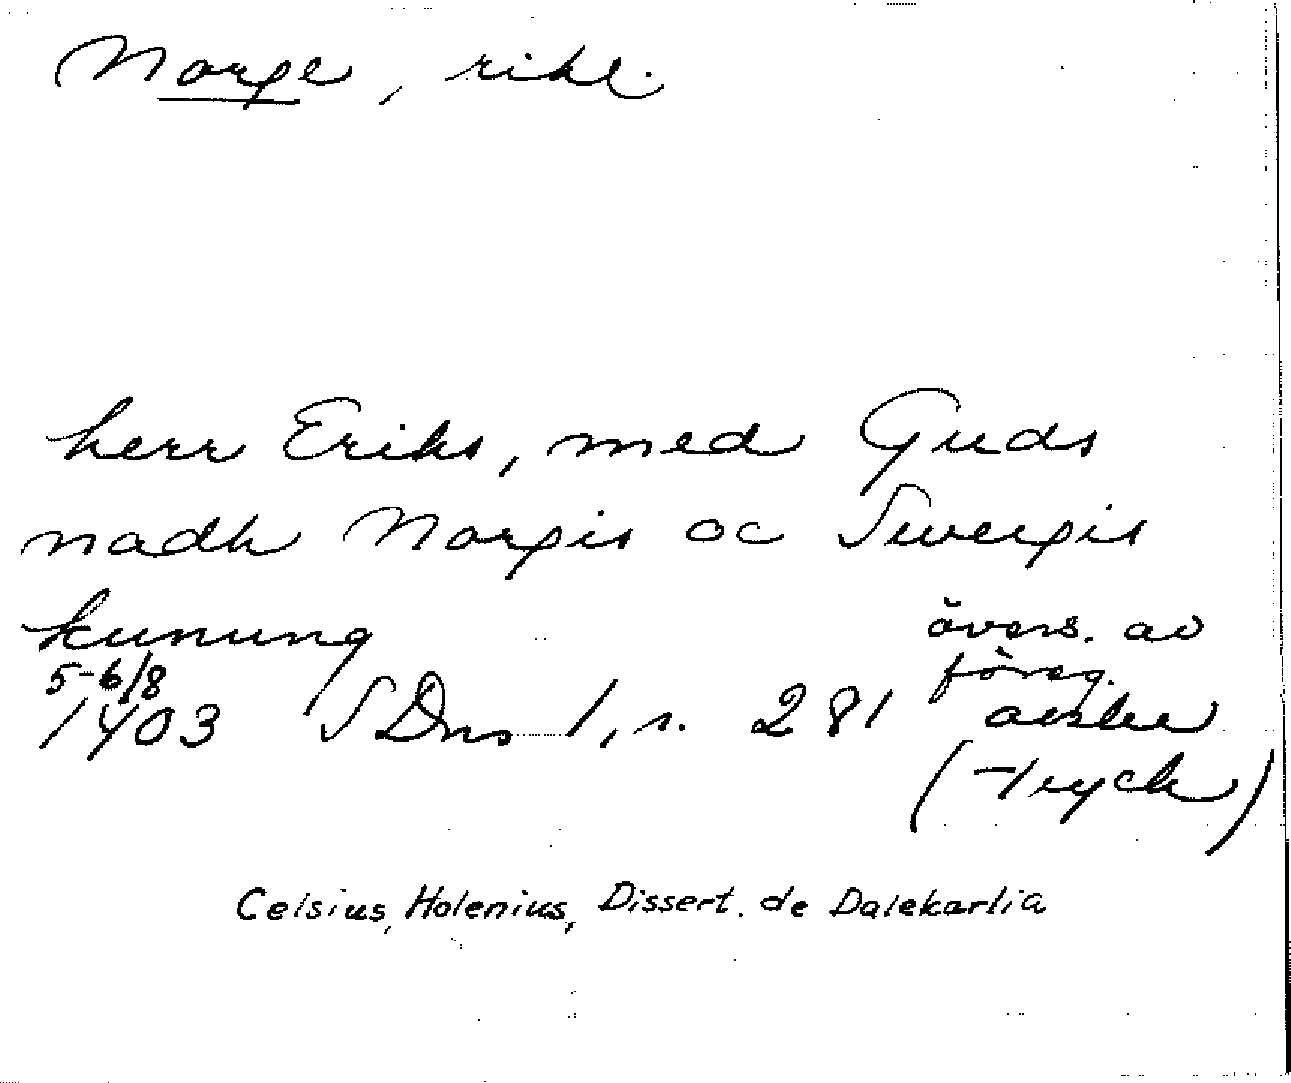 Norge, rikl.
herr Eriks, med Guds
nadh Norgis oc Swergis
kunung
övers. av
föreg.
5-6/8
1403 SDns 1, s. 281 avskr
(tryck)
Celsius, Holenius, Dissert. de Dalekarlia